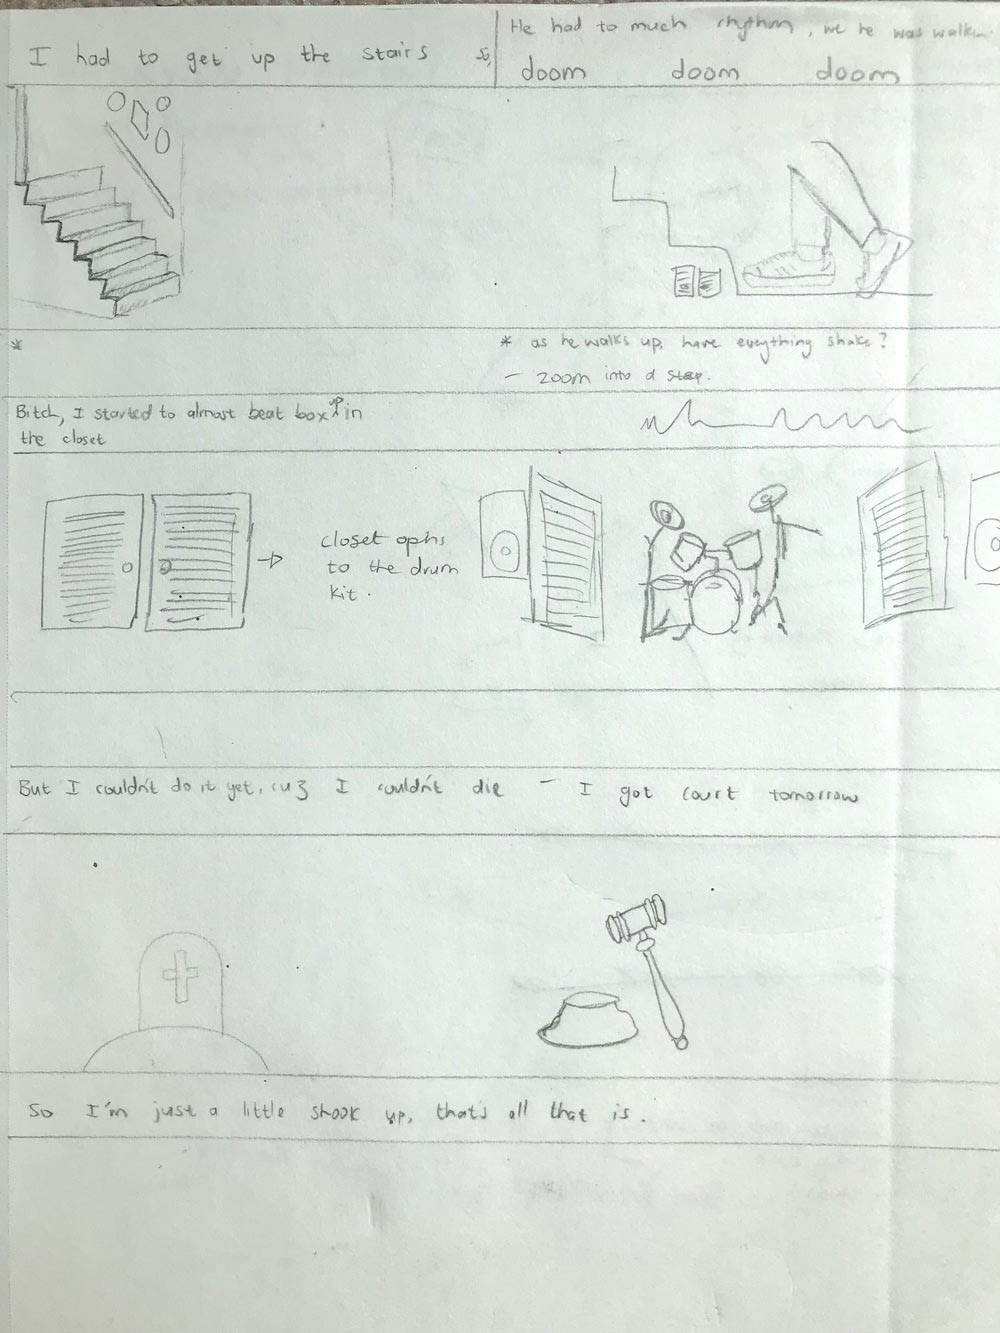 I had to get up the stairs so,
He had to much rhythm, we he was walkin
doom doom doom
*
* as he walks up, have everything shake?
- zoom into a step.
Bitch, I started to almost beat box up in
the closet
closet opns
to the drum
kit.
But I couldn't do it yet, cuz I couldn't die - I got court tomorrow
So I'm just a little shook up, that's all that is.